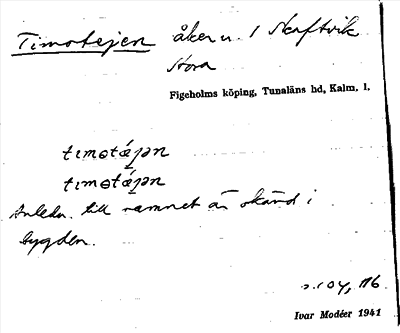 Timotejen åker u. 1 Skaftvik
Stora
Figeholms köping, Tunaläns hd, Kalm. l.
tımotǽjən
tımɵtǽjən
Anledn. till namnet är okänd i
bygden.
s. 104, 116
Ivar Modéer 1941